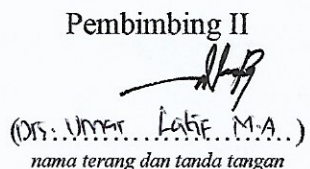 Pembimbing II
(Drs. Umar Latif M.A.)
nama terang dan tanda tangan